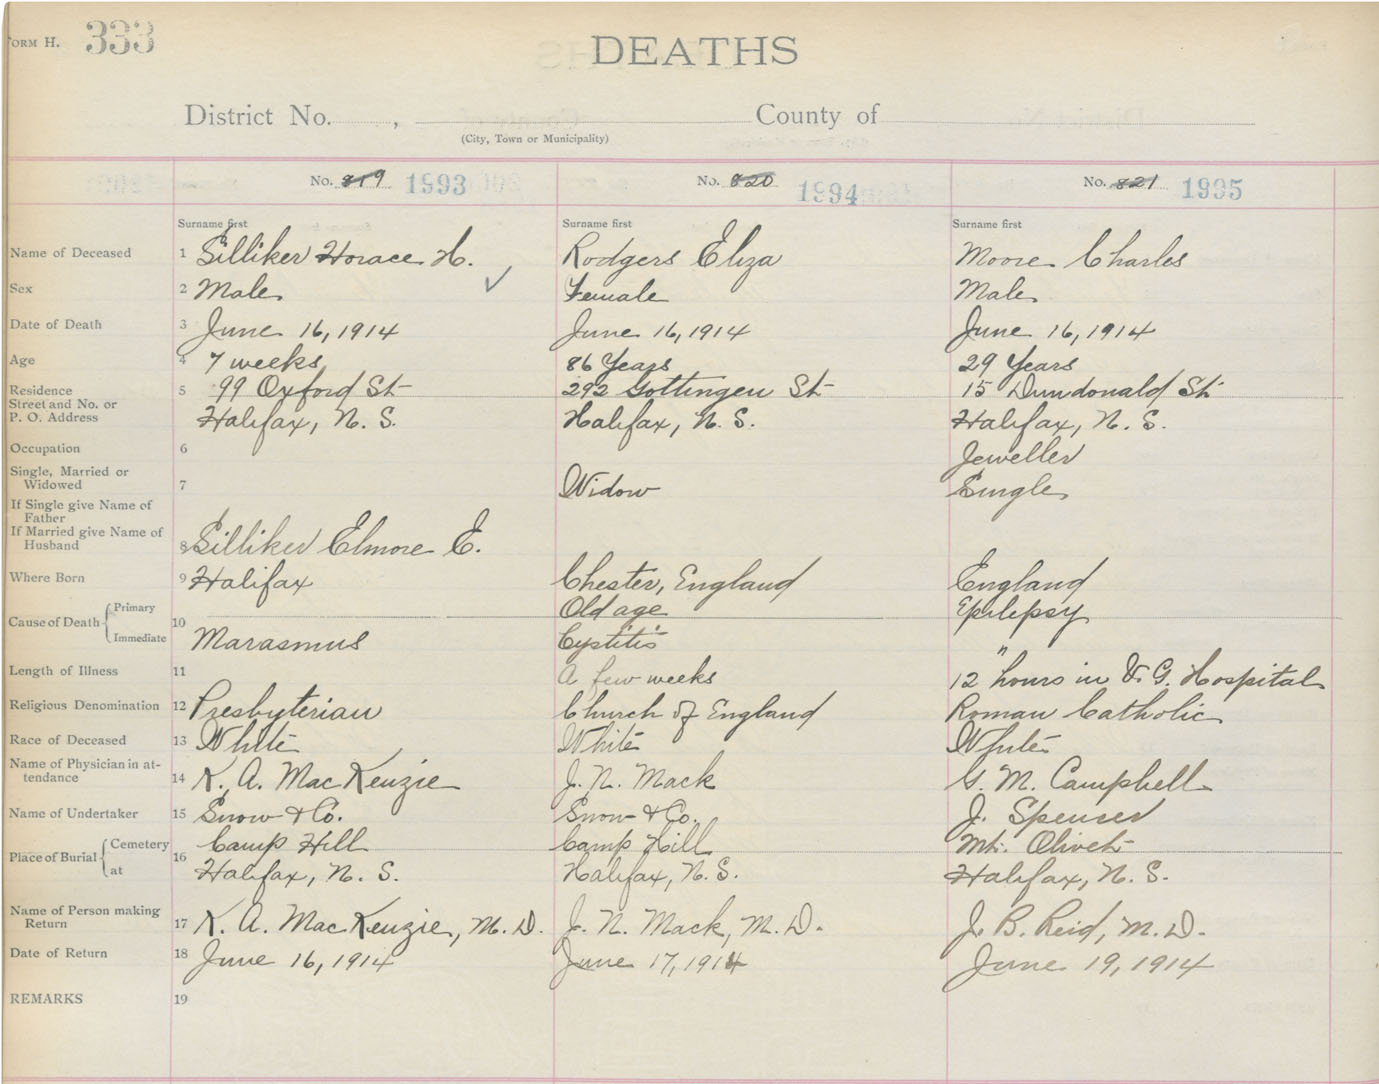 FORM H. 333
DEATHS
District No. , County of
(City, Town or Municipality)
No. 819 1993 No. 820 1994 No. 821 1995
Surname first Surname first Surname first
Name of Deceased 1 Silliker Horace H. Rodgers Eliza Moore Charles
Sex 2 Male ✓ Female Male
Date of Death 3 June 16, 1914 June 16, 1914 June 16, 1914
Age 4 7 weeks 86 Years 29 Years
Residence 5 99 Oxford St 292 Gottingen St 15 Dundonald St
Street and No. or
P. O. Address Halifax, N. S. Halifax, N. S. Halifax, N. S.
Occupation 6 Jeweller
Single, Married or
Widowed 7 Widow Single
If Single give Name of
Father
If Married give Name of
Husband 8 Silliker Elmore E.
Where Born 9 Halifax Chester, England England
Cause of Death 10 Primary Old age Epilepsy
Immediate Marasmus Cystitis "
Length of Illness 11 A few weeks 12 hours in V. G. Hospital
Religious Denomination 12 Presbyterian Church of England Roman Catholic
Race of Deceased 13 White White White
Name of Physician in at-
tendance 14 K. A. MacKenzie J. N. Mack G. M. Campbell
Name of Undertaker 15 Snow & Co. Snow & Co. J. Spenser
Place of Burial 16 Cemetery Camp Hill Camp Hill Mt. Olivet
at Halifax, N. S. Halifax, N. S. Halifax, N. S.
Name of Person making
Return 17 K. A. MacKenzie, M. D. J. N. Mack, M. D. J. B. Reid, M. D.
Date of Return 18 June 16, 1914 June 17, 1914 June 19, 1914
REMARKS 19